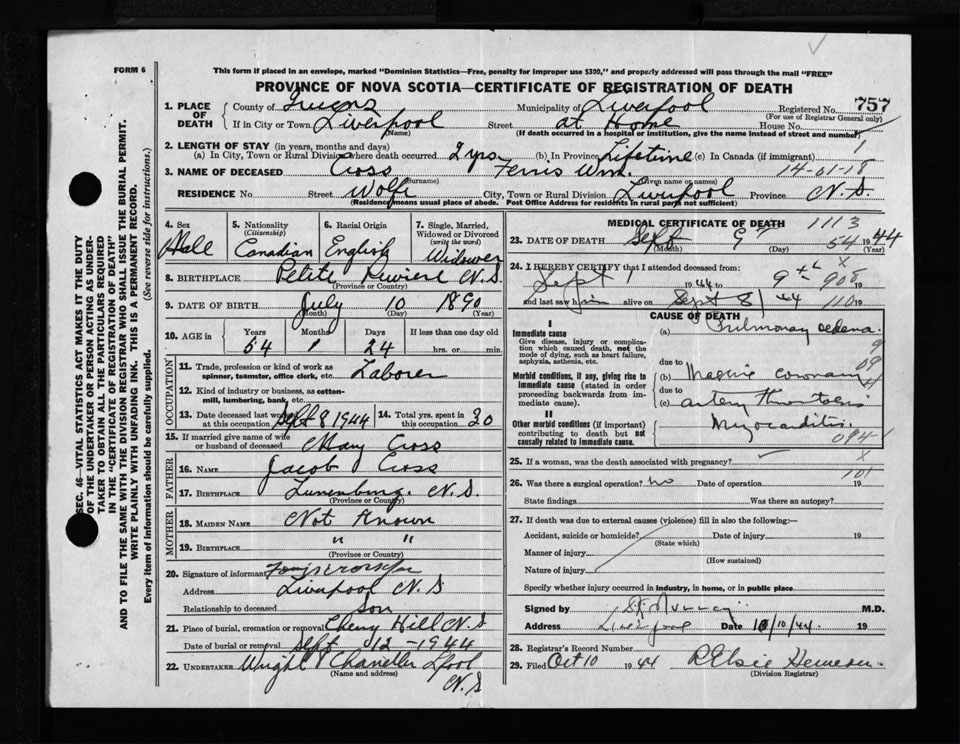 FORM 6
This form if placed in an envelope, marked "Dominion Statistics—Free, penalty for improper use $300," and properly addressed will pass through the mail "FREE"
PROVINCE OF NOVA SCOTIA—CERTIFICATE OF REGISTRATION OF DEATH
1. PLACE OF DEATH County of Queens Municipality of Liverpool Registered No. 757
(For use of Registrar General only)
If in City or Town Liverpool Street at Home House No.
(Name) (If death occurred in a hospital or institution, give the name instead of street and number)
2. LENGTH OF STAY (in years, months and days) 1
(a) In City, Town or Rural Division where death occurred 2 yrs. (b) In Province Lifetime (c) In Canada (if immigrant)
3. NAME OF DECEASED Cross Ferris Wm. 14-01-18
(Surname) (Given name or names)
RESIDENCE No. Street Wolfe City, Town or Rural Division Liverpool Province N.S.
(Residence means usual place of abode. Post Office Address for residents in rural parts not sufficient)
4. Sex Male
5. Nationality (Citizenship) Canadian
6. Racial Origin English
7. Single, Married, Widowed or Divorced (write the word) Widower
8. BIRTHPLACE Petite Riviere N.S.
(Province or Country)
9. DATE OF BIRTH July 10 1890
(Month) (Day) (Year)
10. AGE in Years Months Days If less than one day old
54 1 24 hrs. or min.
OCCUPATION
11. Trade, profession or kind of work as spinner, teamster, office clerk, etc. Laborer
12. Kind of industry or business, as cotton-mill, lumbering, bank, etc.
13. Date deceased last worked at this occupation Sept 8 1944 14. Total yrs. spent in this occupation 30
15. If married give name of wife or husband of deceased Mary Cross
FATHER
16. NAME Jacob Cross
17. BIRTHPLACE Lunenburg. N.S.
(Province or Country)
MOTHER
18. MAIDEN NAME Not Known
19. BIRTHPLACE " "
(Province or Country)
20. Signature of informant
Address Liverpool N.S
Relationship to deceased Son
21. Place of burial, cremation or removal Cherry Hill N.S
Date of burial or removal Sept 12-1944
22. UNDERTAKER Wright Chandler Lpool N.S
(Name and address)
MEDICAL CERTIFICATE OF DEATH 1113
23. DATE OF DEATH Sept 9 1944
(Month) (Day) 54 (Year)
24. I HEREBY CERTIFY that I attended deceased from: X
Sept 1 1944 to 9th 908
and last saw him alive on Sept 8 44 110 19
CAUSE OF DEATH
I
Immediate cause
Give disease, injury or complication which caused death, not the mode of dying, such as heart failure, asphyxia, asthenia, etc.
(a) Pulmonary oedema.
due to
Morbid conditions, if any, giving rise to immediate cause (stated in order proceeding backwards from immediate cause).
(b) Massive coronary
due to
(c) artery thrombosis
II
Other morbid conditions (if important) contributing to death but not causally related to immediate cause.
Myocarditis.
094-1
25. If a woman, was the death associated with pregnancy? X
26. Was there a surgical operation? no Date of operation 101 19
State findings Was there an autopsy?
27. If death was due to external causes (violence) fill in also the following:—
Accident, suicide or homicide? Date of injury 19
(State which)
Manner of injury
(How sustained)
Nature of injury
Specify whether injury occurred in industry, in home, or in public place
Signed by Murray M.D.
Address Liverpool Date 10/10/44. 19
28. Registrar's Record Number
29. Filed Oct 10 1944
(Division Registrar)
SEC. 46—VITAL STATISTICS ACT MAKES IT THE DUTY
OF THE UNDERTAKER OR PERSON ACTING AS UNDER-
TAKER TO OBTAIN ALL THE PARTICULARS REQUIRED
IN THE "CERTIFICATE OF REGISTRATION OF DEATH"
AND TO FILE THE SAME WITH THE DIVISION REGISTRAR WHO SHALL ISSUE THE BURIAL PERMIT.
WRITE PLAINLY WITH UNFADING INK. THIS IS A PERMANENT RECORD.
Every item of information should be carefully supplied. (See reverse side for instructions.)